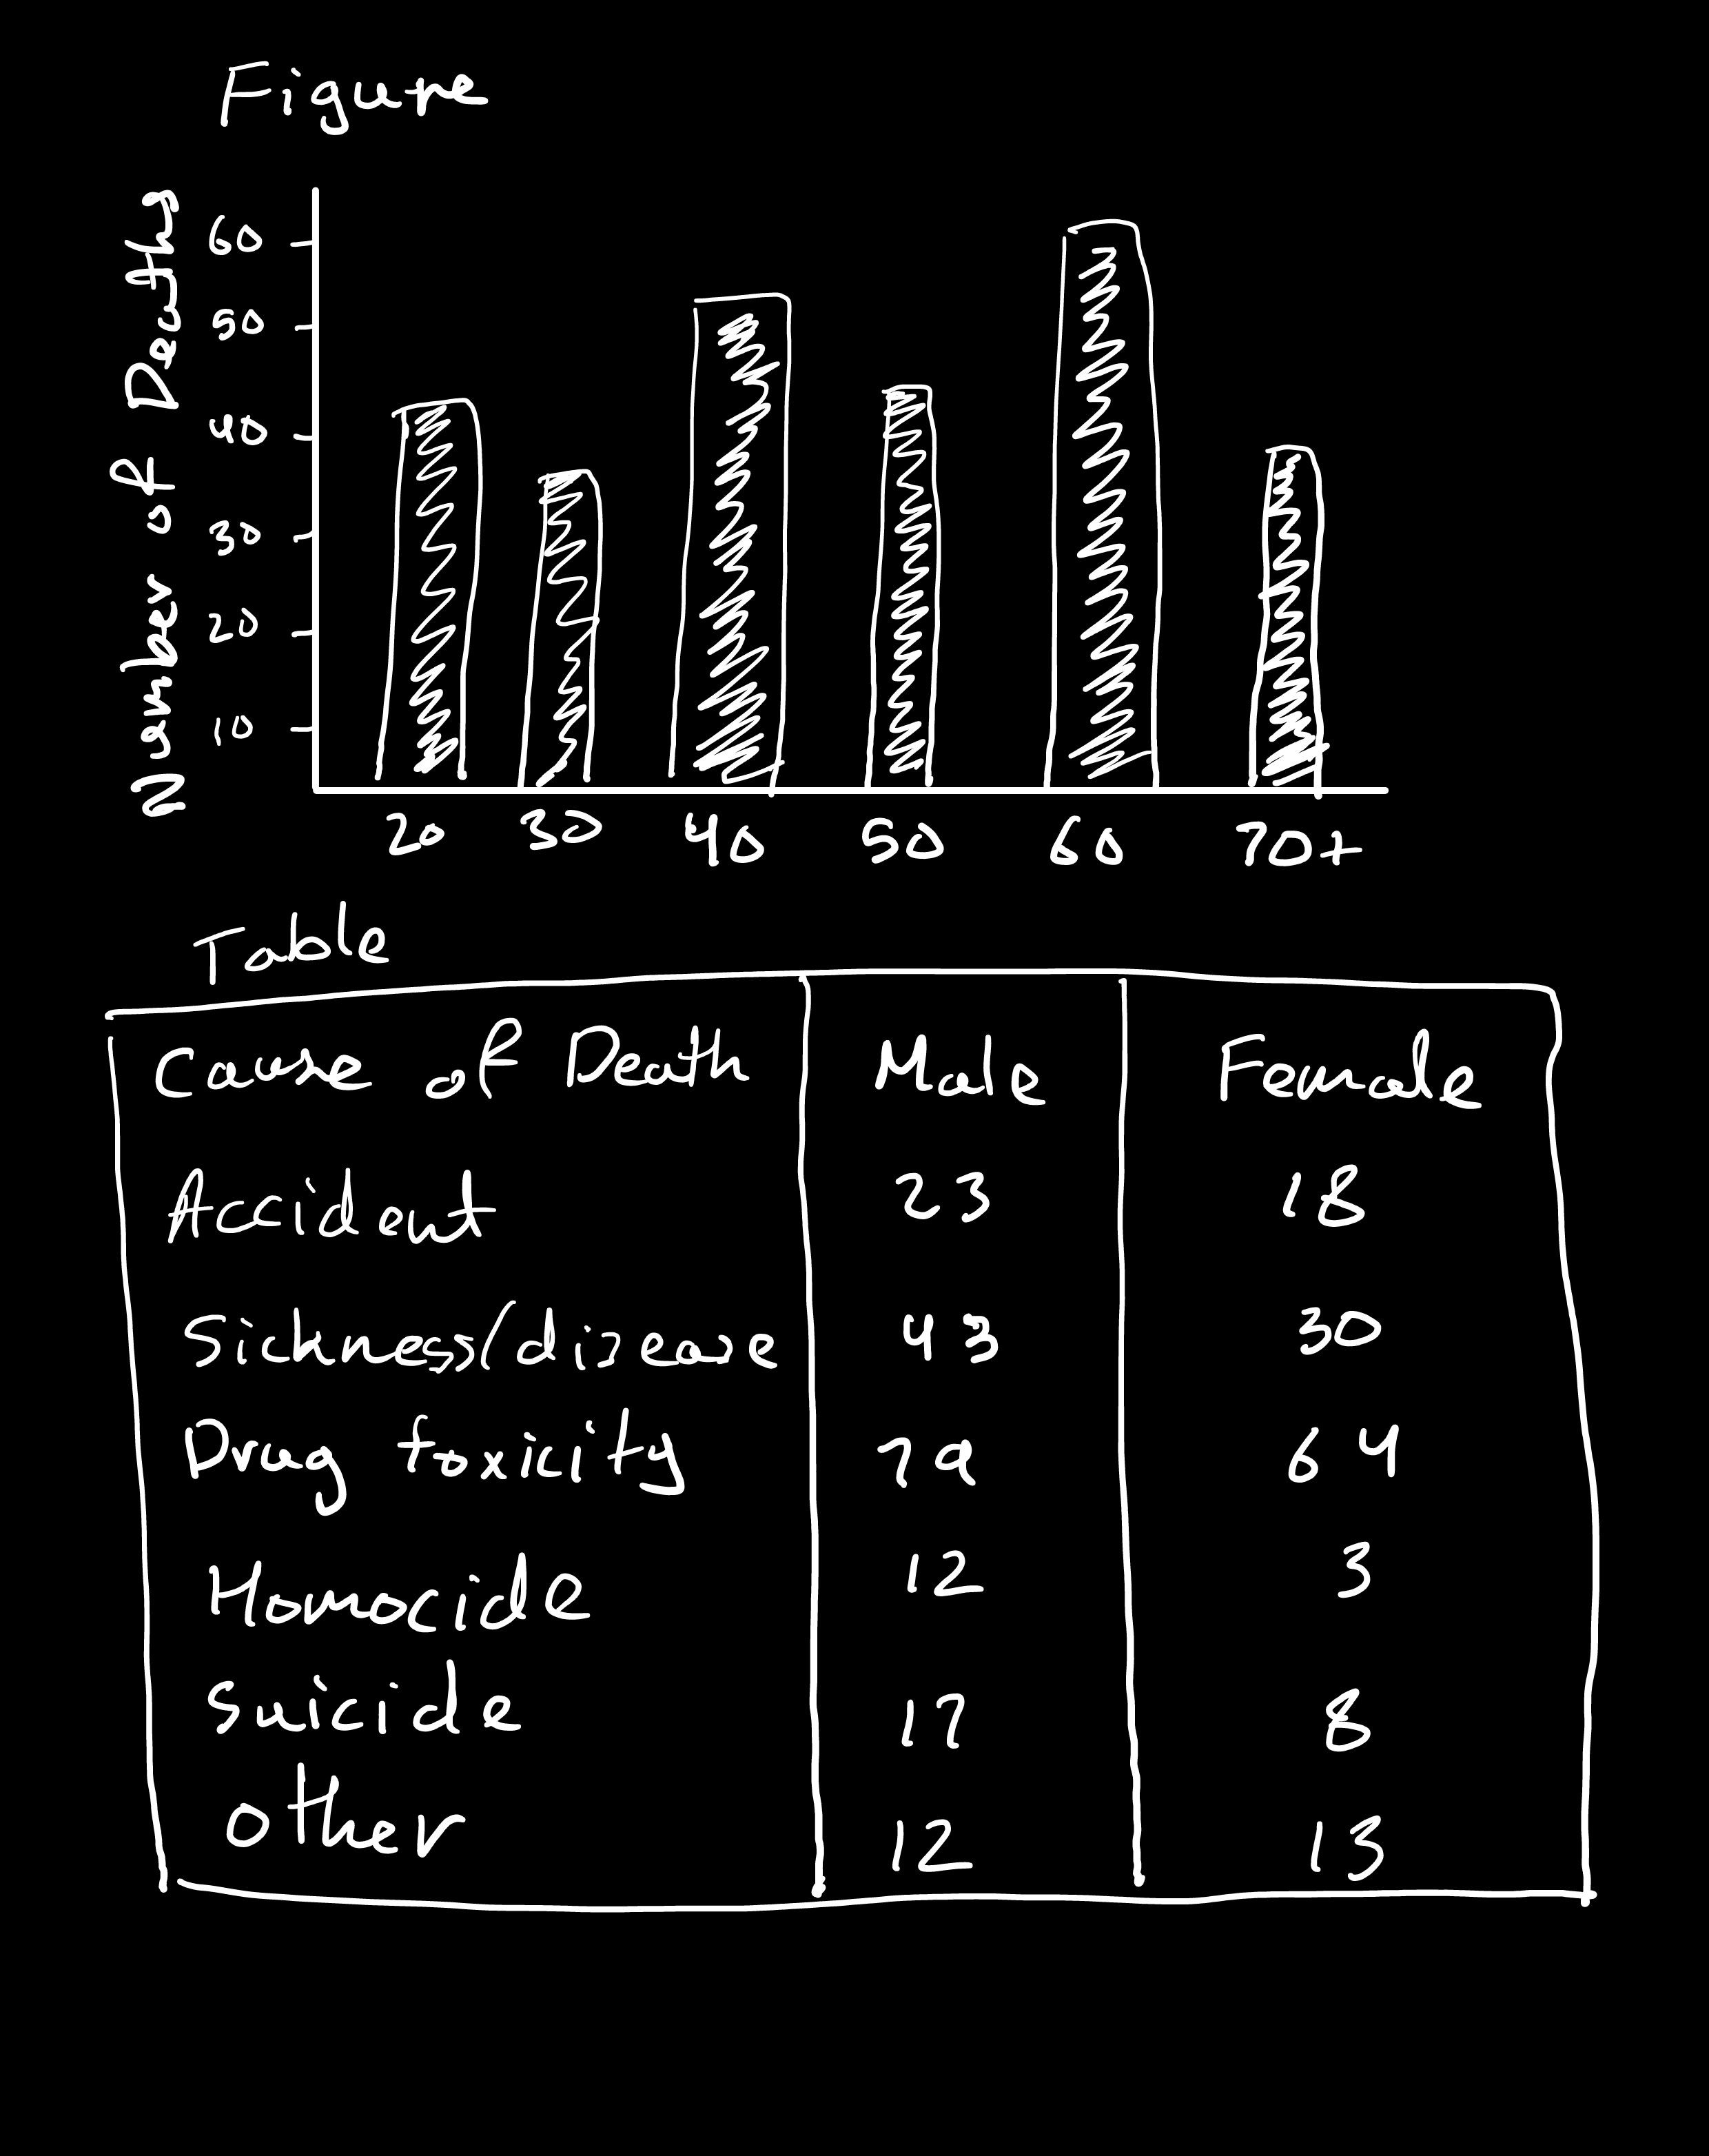 Figure
Number of Deaths
60
50
40
30
20
10
20 30 40 50 60 70+
Table
Cause of Death Male Female
Accident 23 18
Sickness/disease 43 30
Drug toxicity 79 64
Homocide 12 3
Suicide 17 8
Other 12 13